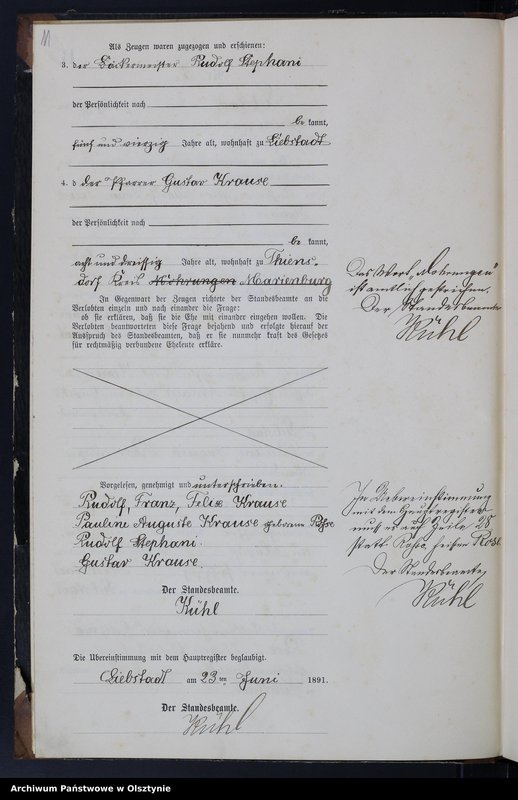 11
Als Zeugen waren zugezogen und erschienen:
3. der Bäckermeister Rudolf Stephani
der Persönlichkeit nach
be kannt,
fünf und vierzig Jahre alt, wohnhaft zu Liebstadt
4. d der Pfarrer Gustav Krause
der Persönlichkeit nach
be kannt,
acht und dreissig Jahre alt, wohnhaft zu Thiens-
dorf Kreis Mohrungen Marienburg
In Gegenwart der Zeugen richtete der Standesbeamte an die
Verlobten einzeln und nach einander die Frage:
ob sie erklären, daß sie die Ehe mit einander eingehen wollen. Die
Verlobten beantworteten diese Frage bejahend und erfolgte hierauf der
Ausspruch des Standesbeamten, daß er sie nunmehr kraft des Gesetzes
für rechtmäßig verbundene Eheleute erkläre.
Das Wort „Mohrungen"
ist amtlich gestrichen.
Der Standesbeamte
Kühl
Vorgelesen, genehmigt und unterschrieben.
Rudolf, Franz, Felix Krause
Pauline Auguste Krause geborene
Rudolf Stephani.
Gustav Krause.
Der Standesbeamte.
Kühl
In Uebereinstimmung
mit dem Hauptregister
muß es auf Zeile 28
statt heißen
Der Standesbeamte
Kühl
Die Übereinstimmung mit dem Hauptregister beglaubigt.
Liebstadt am 23ten Juni 1891.
Der Standesbeamte.
Kühl
Archiwum Państwowe w Olsztynie